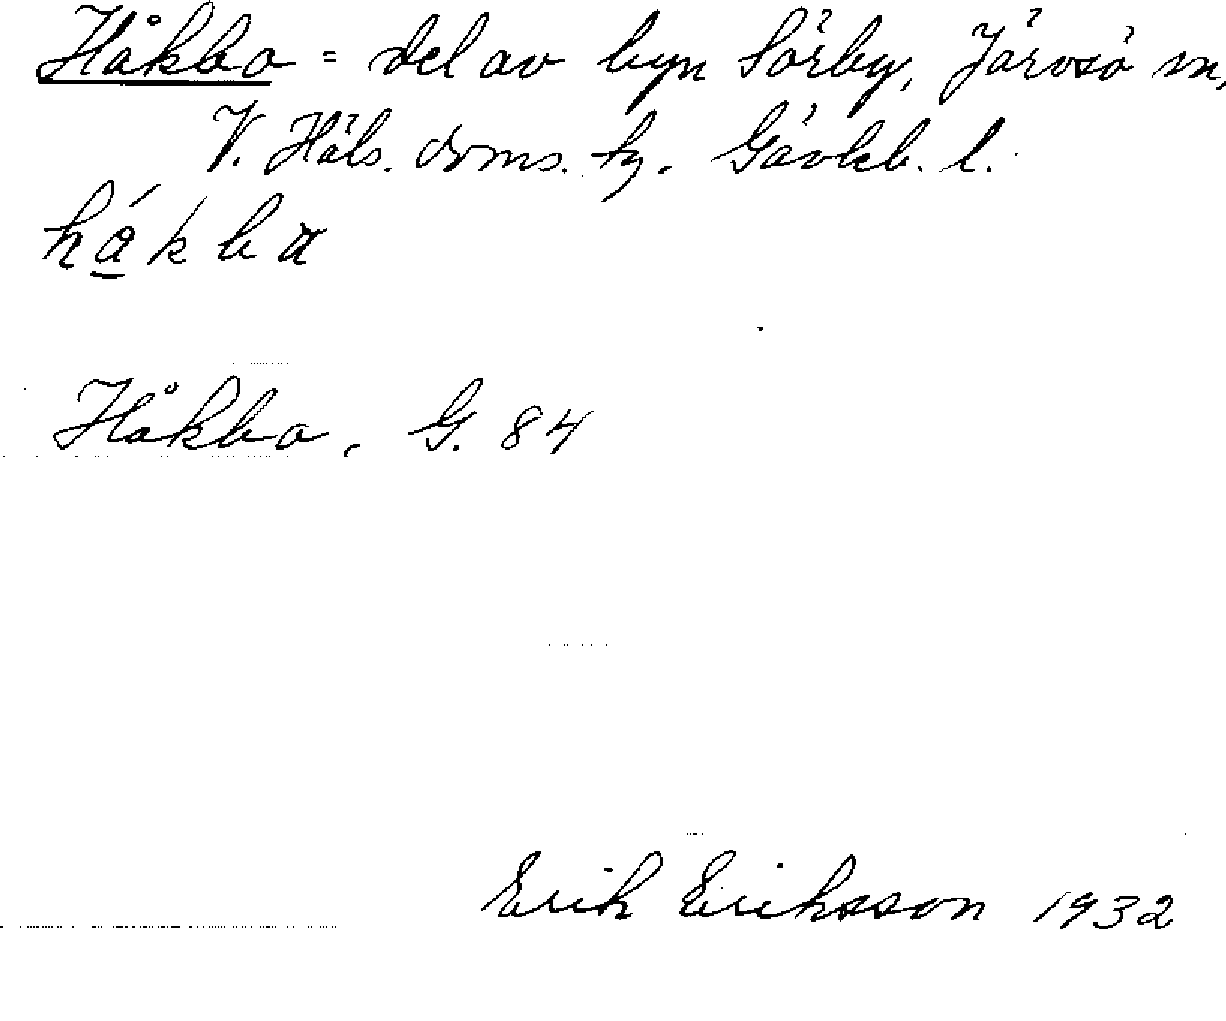 Håkbo = del av byn Sörby, Järvsö sn,
V. Häls. doms. tg. Gävleb. l.
hǻkba
Håkbo, G. 84
Erik Eriksson 1932